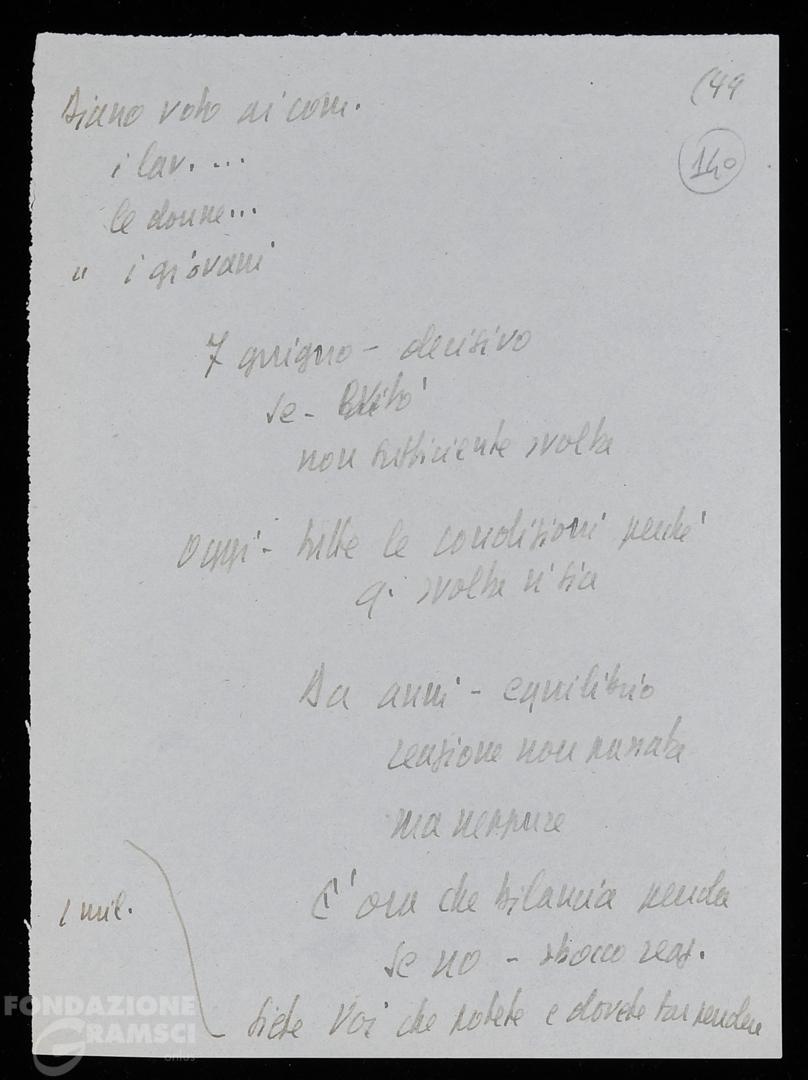 (49
140
Diano voto ai com.
i lav. ...
le donne...
" i giovani
7 giugno - decisivo
se -
non sufficiente svolta
Oggi - tutte le condizioni perché
q. svolta vi sia
Da anni - equilibrio
reazione non passata
ma neppure
È ora che bilancia penda
se no - sbocco reaz.
1 mil.
siete Voi che potete e dovete far pendere
FONDAZIONE
GRAMSCI
onlus